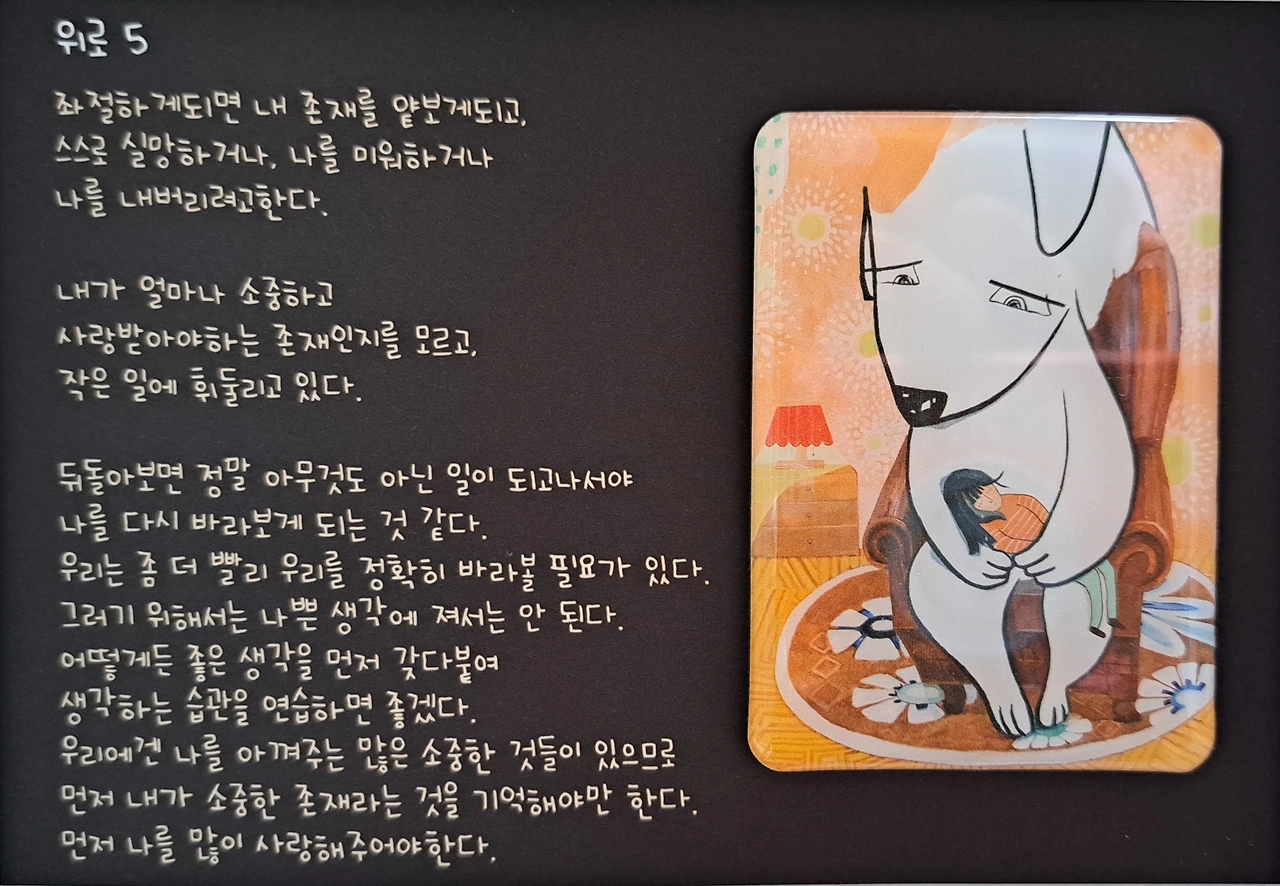 위로 5
좌절하게되면 내 존재를 얕보게되고,
스스로 실망하거나, 나를 미워하거나
나를 내버리려고한다.
내가 얼마나 소중하고
사랑받아야하는 존재인지를 모르고,
작은 일에 휘둘리고 있다.
뒤돌아보면 정말 아무것도 아닌 일이 되고나서야
나를 다시 바라보게 되는 것 같다.
우리는 좀 더 빨리 우리를 정확히 바라볼 필요가 있다.
그러기 위해서는 나쁜 생각에 져서는 안 된다.
어떻게든 좋은 생각을 먼저 갖다붙여
생각하는 습관을 연습하면 좋겠다.
우리에겐 나를 아껴주는 많은 소중한 것들이 있으므로
먼저 내가 소중한 존재라는 것을 기억해야만 한다.
먼저 나를 많이 사랑해주어야한다.